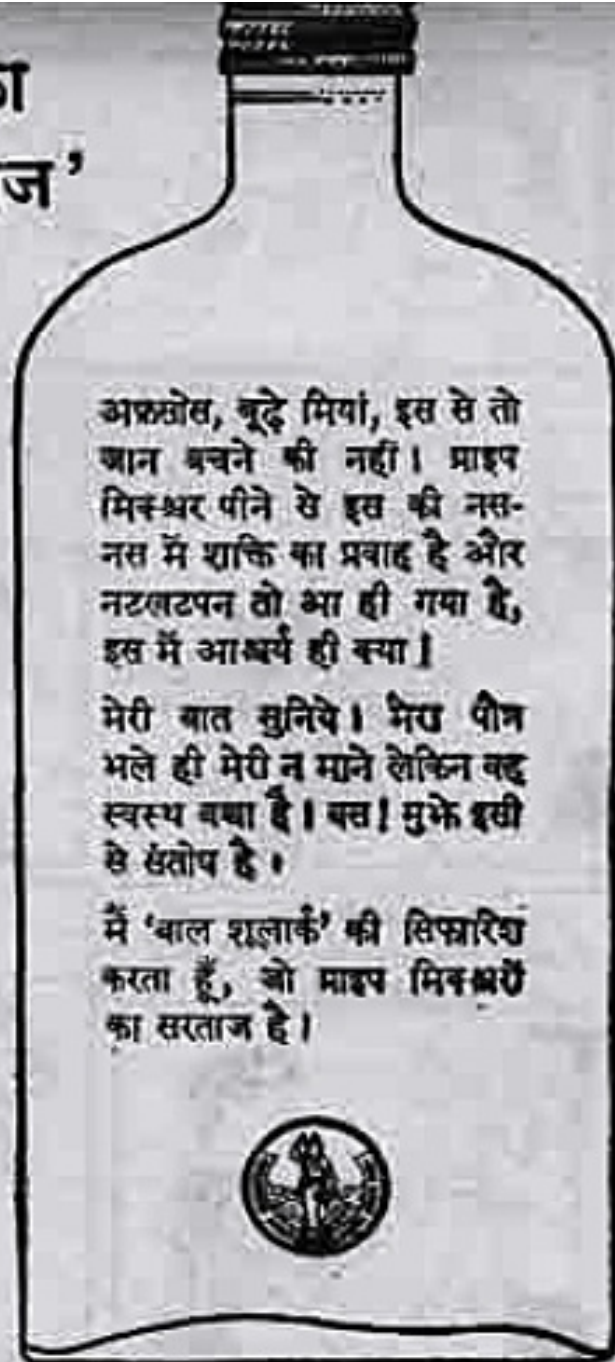 का
ज’
अफ़सोस, बूढ़े मियां, इस से तो
जान बचने की नहीं। ग्राइप
मिक्श्चर पीने से इस की नस-
नस में शक्ति का प्रवाह है और
नटखटपन तो आ ही गया है,
इस में आश्चर्य ही क्या!
मेरी बात सुनिये। मेरा पौत्र
भले ही मेरी न माने लेकिन वह
स्वस्थ बच्चा है। बस! मुझे इसी
से संतोष है।
मैं ‘बाल शूलार्क’ की सिफ़ारिश
करता हूँ, जो ग्राइप मिक्श्चरों
का सरताज है।